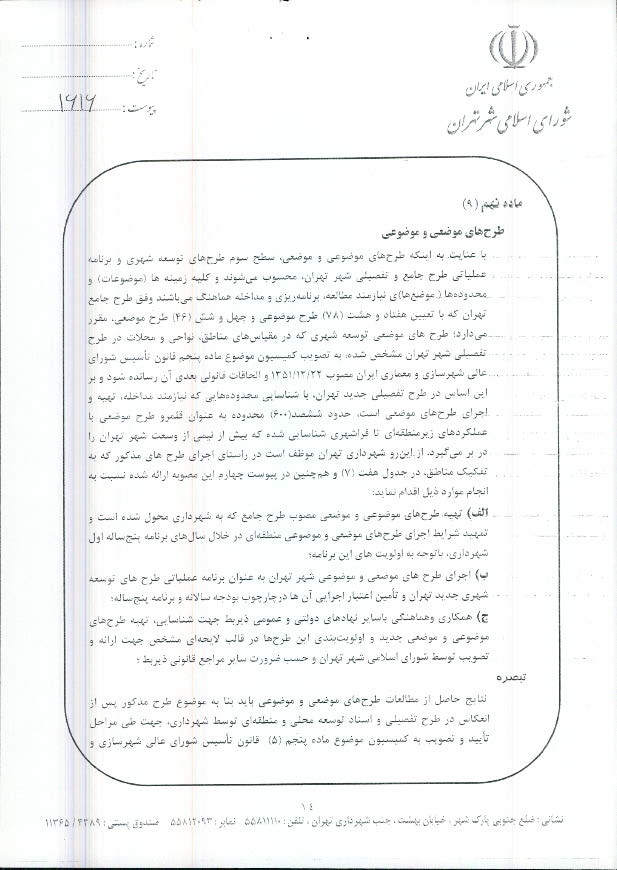 جمهوری اسلامی ایران
شورای اسلامی شهر تهران
شماره :
تاریخ :
پیوست : ۱۶۱۶
ماده نهم (۹)
طرح‌های موضعی و موضوعی
با عنایت به اینکه طرح‌های موضوعی و موضعی، سطح سوم طرح‌های توسعه شهری و برنامه
عملیاتی طرح جامع و تفصیلی شهر تهران، محسوب می‌شوند و کلیه زمینه ها (موضوعات) و
محدوده‌ها (موضع‌ها)ی نیازمند مطالعه، برنامه‌ریزی و مداخله هماهنگ می‌باشند وفق طرح جامع
تهران که با تعیین هفتاد و هشت (۷۸) طرح موضوعی و چهل و شش (۴۶) طرح موضعی، مقرر
می‌دارد؛ طرح های موضعی توسعه شهری که در مقیاس‌های مناطق، نواحی و محلات در طرح
تفصیلی شهر تهران مشخص شده، به تصویب کمیسیون موضوع ماده پنجم قانون تأسیس شورای
عالی شهرسازی و معماری ایران مصوب ۱۳۵۱/۱۲/۲۲ و الحاقات قانونی بعدی آن رسانده شود و بر
این اساس در طرح تفصیلی جدید تهران، با شناسایی محدوده‌هایی که نیازمند مداخله، تهیه و
اجرای طرح‌های موضعی است، حدود ششصد(۶۰۰) محدوده به عنوان قلمرو طرح موضعی با
عملکردهای زیرمنطقه‌ای تا فراشهری شناسایی شده که بیش از نیمی از وسعت شهر تهران را
در بر می‌گیرد. از این‌رو شهرداری تهران موظف است در راستای اجرای طرح های مذکور که به
تفکیک مناطق، در جدول هفت (۷) و همچنین در پیوست چهارم این مصوبه ارائه شده نسبت به
انجام موارد ذیل اقدام نماید:
الف) تهیه طرح‌های موضوعی و موضعی مصوب طرح جامع که به شهرداری محول شده است و
تمهید شرایط اجرای طرح‌های موضعی و موضوعی منطقه‌ای در خلال سال‌های برنامه پنج‌ساله اول
شهرداری، باتوجه به اولویت های این برنامه؛
ب) اجرای طرح های موضعی و موضوعی شهر تهران به عنوان برنامه عملیاتی طرح های توسعه
شهری جدید تهران و تأمین اعتبار اجرایی آن ها درچارچوب بودجه سالانه و برنامه پنج‌ساله؛
ج) همکاری وهماهنگی باسایر نهادهای دولتی و عمومی ذیربط جهت شناسایی، تهیه طرح‌های
موضوعی و موضعی جدید و اولویت‌بندی این طرح‌ها در قالب لایحه‌ای مشخص جهت ارائه و
تصویب توسط شورای اسلامی شهر تهران و حسب ضرورت سایر مراجع قانونی ذیربط ؛
تبصره
نتایج حاصل از مطالعات طرح‌های موضعی و موضوعی باید بنا به موضوع طرح مذکور پس از
انعکاس در طرح تفصیلی و اسناد توسعه محلی و منطقه‌ای توسط شهرداری، جهت طی مراحل
تأیید و تصویب به کمیسیون موضوع ماده پنجم (۵) قانون تأسیس شورای عالی شهرسازی و
۱۴
نشانی : ضلع جنوبی پارک شهر ، خیابان بهشت ، جنب شهرداری تهران ، تلفن : ۵۵۸۱۱۱۱۰ نمابر : ۵۵۸۱۲۰۹۳ صندوق پستی : ۴۳۸۹ / ۱۱۳۶۵